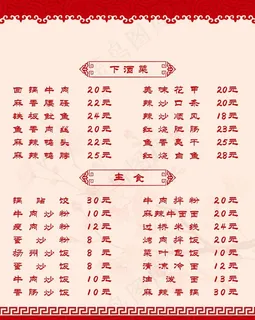 下酒菜
面 牛肉 20元 美味花甲 20元
麻香 22元 辣炒口条 20元
铁板鱿鱼 24元 辣炒顺风 18元
鱼香肉丝 20元 红烧肥肠 23元
麻辣鸭头 22元 鱼香 24元
麻辣鸭脖 25元 红烧 28元
主食
锅贴饺 30元 牛肉拌粉 20元
牛肉炒粉 10元 麻辣牛肉面 20元
瘦肉炒粉 12元 过桥米线 24元
蛋炒粉 8元 烤肉拌饭 20元
扬州炒饭 8元 菜叶包饭 10元
蛋炒饭 8元 清凉冷面 12元
牛肉炒饭 10元 油泼面 13元
香肠炒饭 10元 麻辣香锅 30元